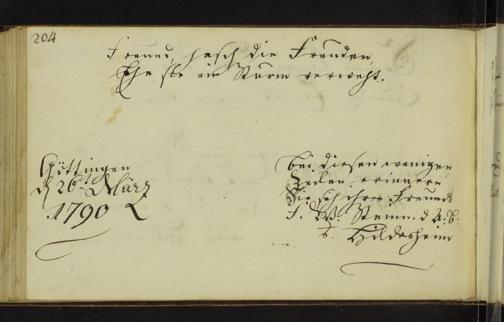 204
Freund hasch die Freuden,
Ehe sie ein Sturm verweht.
Göttingen
d 26 März
1790
Bei diesen wenigen
Zeilen erinnern
Sie sich ihres Freund
Hildesheim